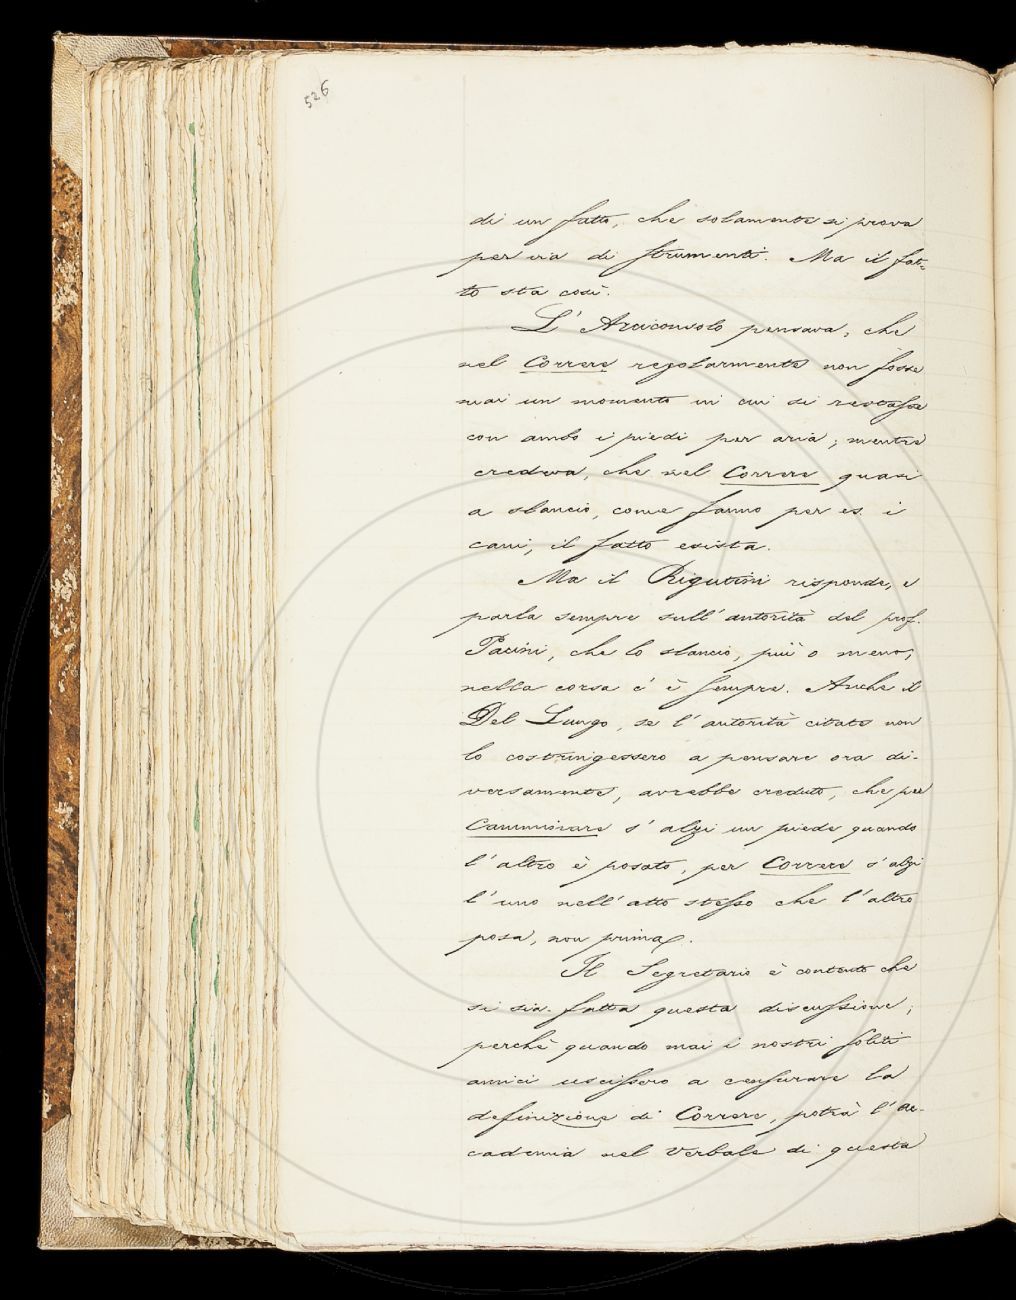 526
di un fatto, che solamente si prova
per via di strumenti. Ma il fat-
to sta così.
L' Arciconsolo pensava, che
nel Correre regolarmente non fosse
mai un momento in cui si restasse
con ambo i piedi per aria; mentre
credeva, che nel Correre quasi
a slancio, come fanno per es. i
cani, il fatto esista.
Ma il Rigutini risponde, e
parla sempre sull' autorità del prof.
Pacini, che lo slancio, più o meno,
nella corsa c' è sempre. Anche il
Del Lungo, se l' autorità citate non
lo costringessero a pensare ora di-
versamente, avrebbe creduto, che per
Camminare s' alzi un piede quando
l' altro è posato, per Correre s' alzi
l' uno nell' atto stesso che l' altro
posa, non prima.
Il Segretario è contento che
si sia fatta questa discussione;
perchè quando mai i nostri soliti
amici uscissero a censurare la
definizione di Correre, potrà l' Ac-
cademia nel Verbale di questa